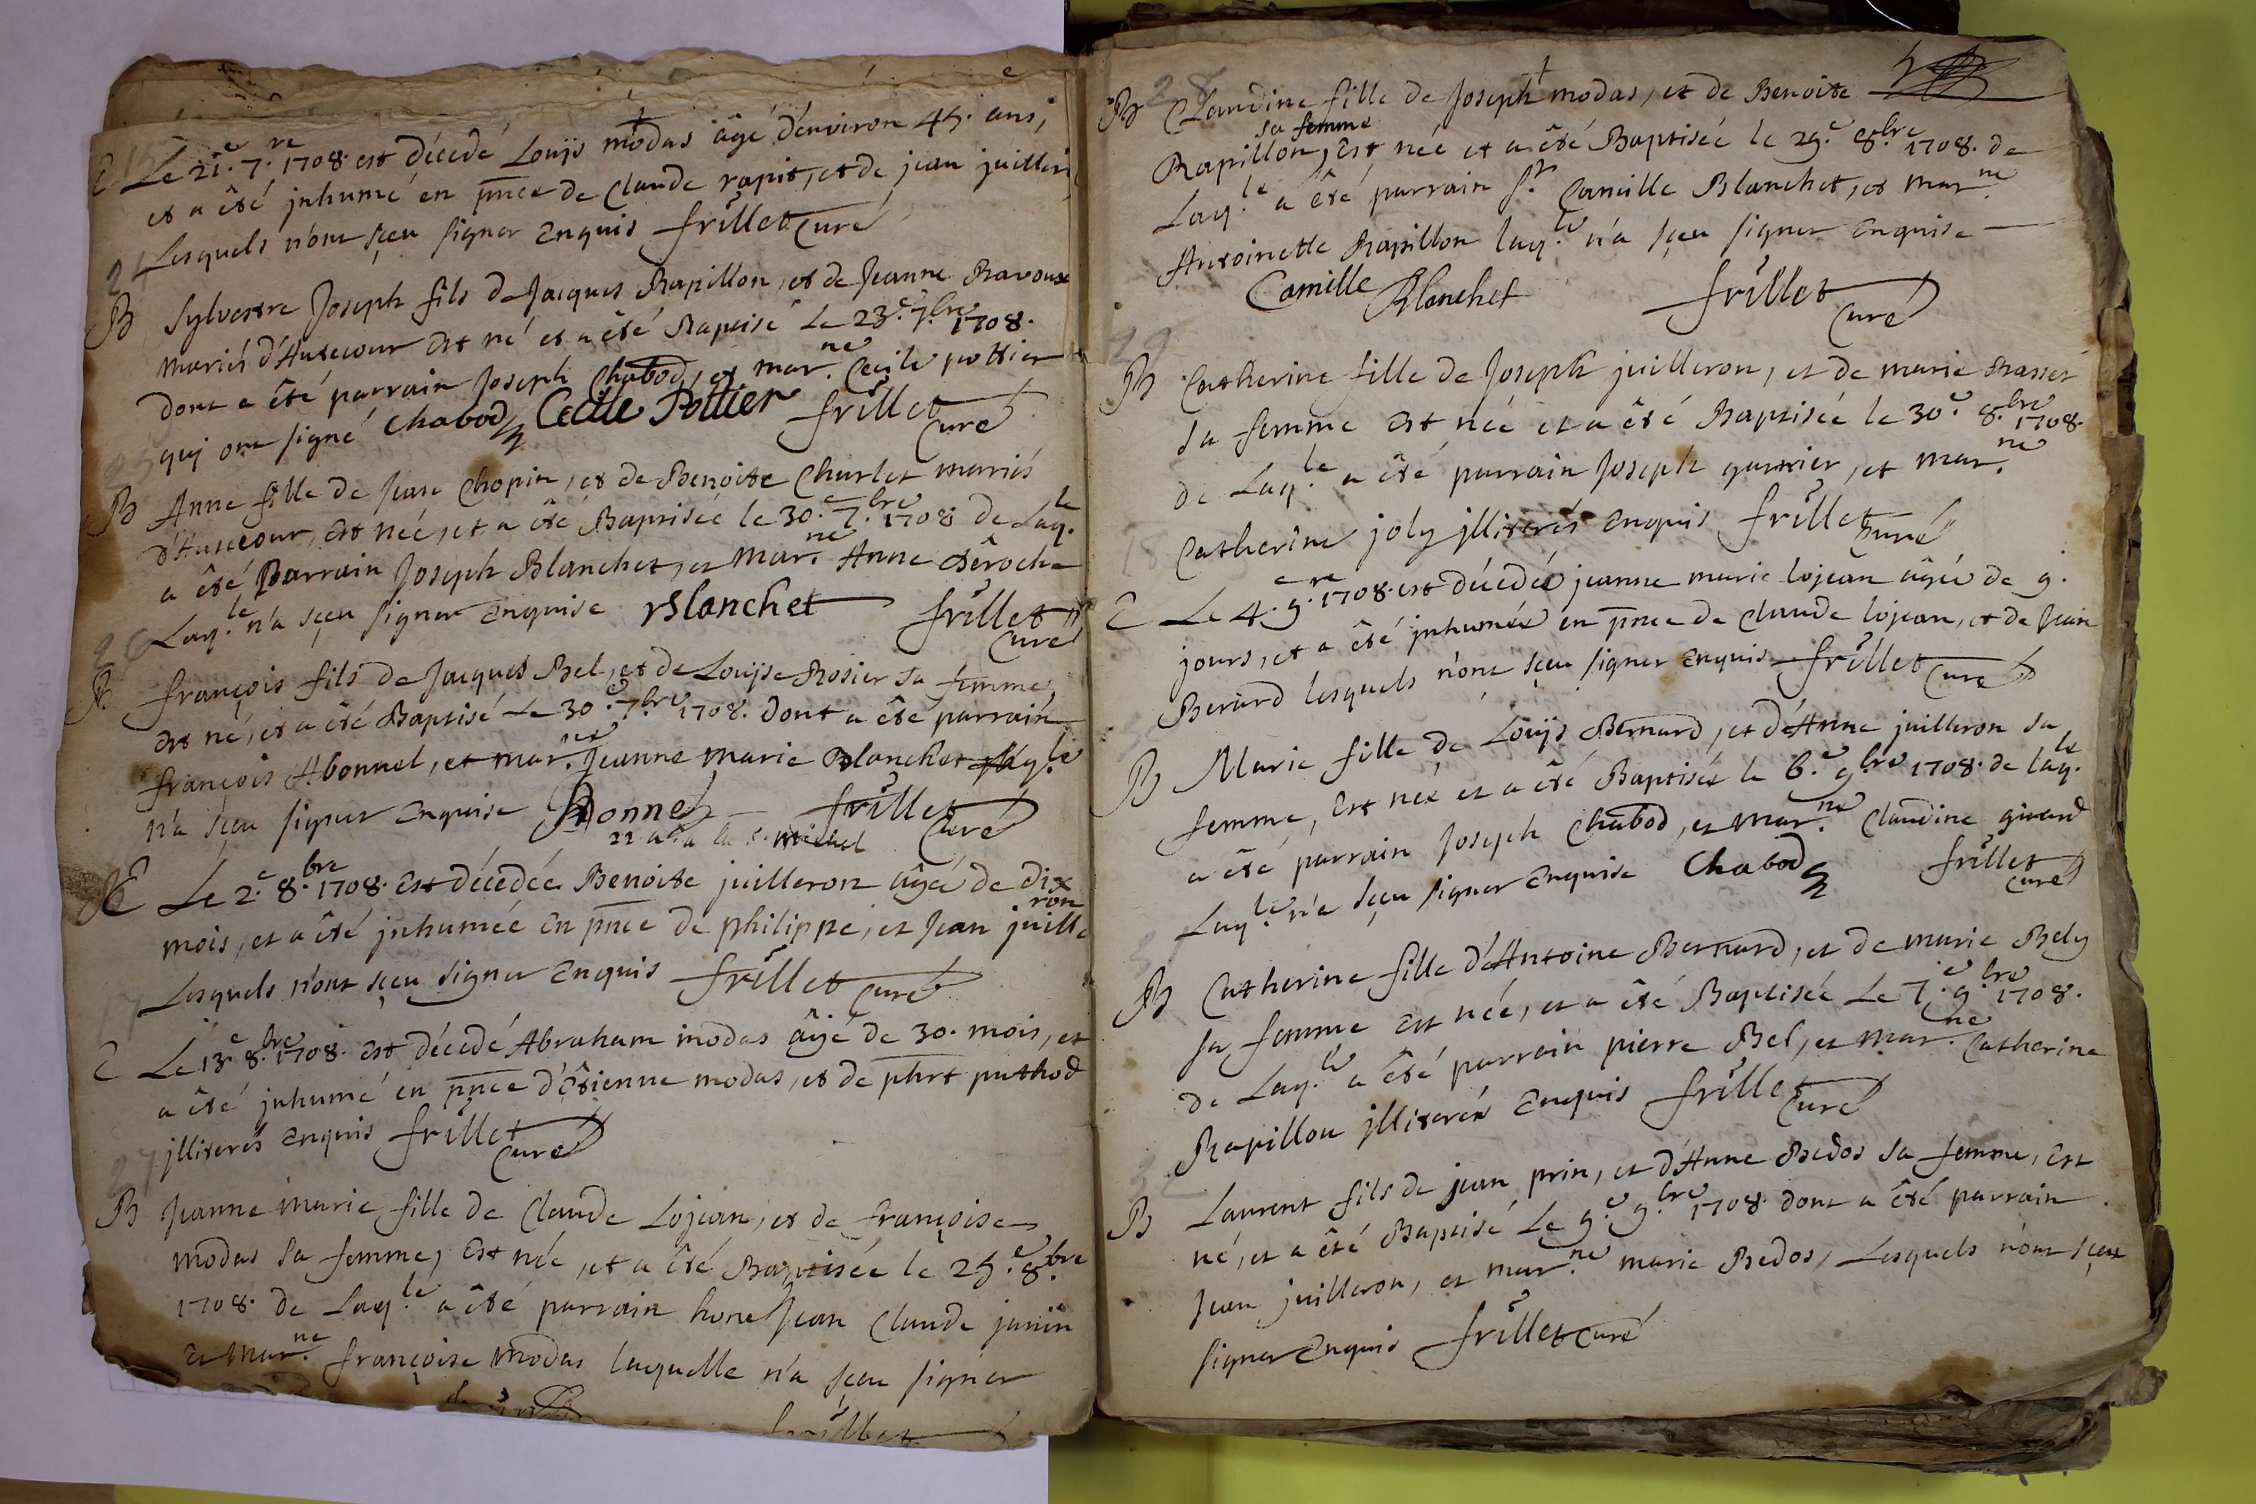 E Le 21.e 7.re 1708. est décédé Louijs modas âgé d'environ 45. ans,
et a êté jnhumé en pñce de Claude rapit, et de jean juilleron
Lesquels n'ont sçeu signer Enquis frillet Curé
24
B Sylvestre Joseph fils de Jacques Rapillon, et de Jeanne Ravoux
mariés d'Hautecour Est né et a êté Baptisé Le 23.e 7.bre 1708.
dont a êté parrain Joseph Chabod, et mar.ne Cecile pottier
quj ont signé Chabod Cecille Pottier frillet Curé
25
B Anne fille de Jean Chopin, et de Benoite Charlet mariés
d'Hautecour, Est née, et a êté Baptisée le 30.e 7.bre 1708 de Laq.le
a êté Parrain Joseph Blanchet, et Mar.ne Anne Dêroche
Laq.le n'a sçeu signer Enquise Blanchet frillet Curé
26
B françois fils de Jacques Bel, et de Louijse Rosier sa femme,
Est né, et a êté Baptisé Le 30.e 7.bre 1708. dont a êté parrain
françois Abonnel, et mar.ne Jeanne Marie Blanchet Laq.le
n'a sçeu signer Enquise Abonnel frillet Curé
22 a la s. michel
E Le 2.e 8.bre 1708. Est décédée Benoite juilleron âgée de dix
mois, et a êté jnhumée En pñce de philippe, et Jean juilleron
Lesquels n'ont sçeu signer Enquis frillet Curé
17
E Le 13.e 8.bre 1708. Est décédé Abraham modas âgé de 30. mois, et
a êté jnhumé én pñce d'Êtienne modas, et de phrt puthod
jlliterés Enquis frillet Curé
27
B Jeanne Marie fille de Claude Lojean, et de françoise
modas sa femme, Est née, et a êté Baptisée le 25.e 8.bre
1708. de Laq.le a êté parrain hone Jean Claude janin
Et Mar.ne françoise modas laquelle n'a sçeu signer
frillet
28
B Claudine fille de Joseph modas, et de Benoite
Rapillon sa femme, Est née et a êté Baptisée le 29.e 8.bre 1708. de
Laq.le a êté parrain S.r Camille Blanchet, et mar.ne
Antoinette Rapillon laq.le n'a sçeu signer Enquise
Camille Blanchet frillet Curé
29
B Catherine fille de Joseph juilleron, et de marie Rasset
sa femme Est née et a êté Baptisée le 30.e 8.bre 1708.
de Laq.le a êté parrain Joseph garnier, et mar.ne
Catherine joly jlliterés Enquis frillet Curé
18
E Le 4.e 9.re 1708. est décédée jeanne marie lojean âgée de 9.
jours, et a êté jnhumée en pñce de Claude lojean, et de Jean
Berard lesquels n'ont sçeu signer Enquis frillet Curé
B Marie fille de Louijs Bernard, et d'Anne juilleron sa
femme, Est née et a êté Baptisée le 6.e 9.bre 1708. de laq.le
a êté parrain Joseph Chabod, et Mar.ne Claudine girard
Laq.le n'a sçeu signer Enquise Chabod frillet Curé
B Catherine fille d'Antoine Bernard, et de marie Bely
sa femme Est née, et a êté Baptisée Le 7.e 9.bre 1708.
de Laq.le a êté parrain pierre Bel, et Mar.ne Catherine
Rapillon jlliterés Enquis frillet Curé
32
B Laurent fils de jean prin, et d'Anne Bedos sa femme, Est
né, et a êté Baptisé Le 9.e 9.bre 1708. dont a êté parrain
Jean juilleron, et mar.ne marie Bedos, Lesquels n'ont sçeu
signer Enquis frillet Curé